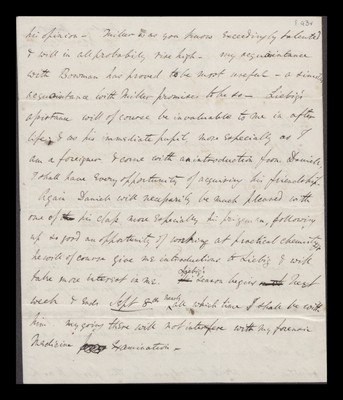 his opinion – Miller is as you know exceedingly talented
& will in all probability rise high – my acquaintance
with Bowman has proved to be most useful – a similar
acquaintance with Miller promises to be so – Liebig's
assistance will of course be invaluable to me in after
life, & as his immediate pupil, more especially as I
am a foreigner & come with an introduction from Daniell,
I shall have every opportunity of acquiring his friendship.
Again Daniell will necessarily be much pleased with
one of his class, more especially his prizeman, following
up so good an opportunity of working at practical chemistry,
he will of course give me introductions to Liebig & will
take more interest in me. Liebig's season begins next
week & ends Sept 8th nearly, all which time I shall be with
him my going there will not interfere with my forensic
Medicine Examination –